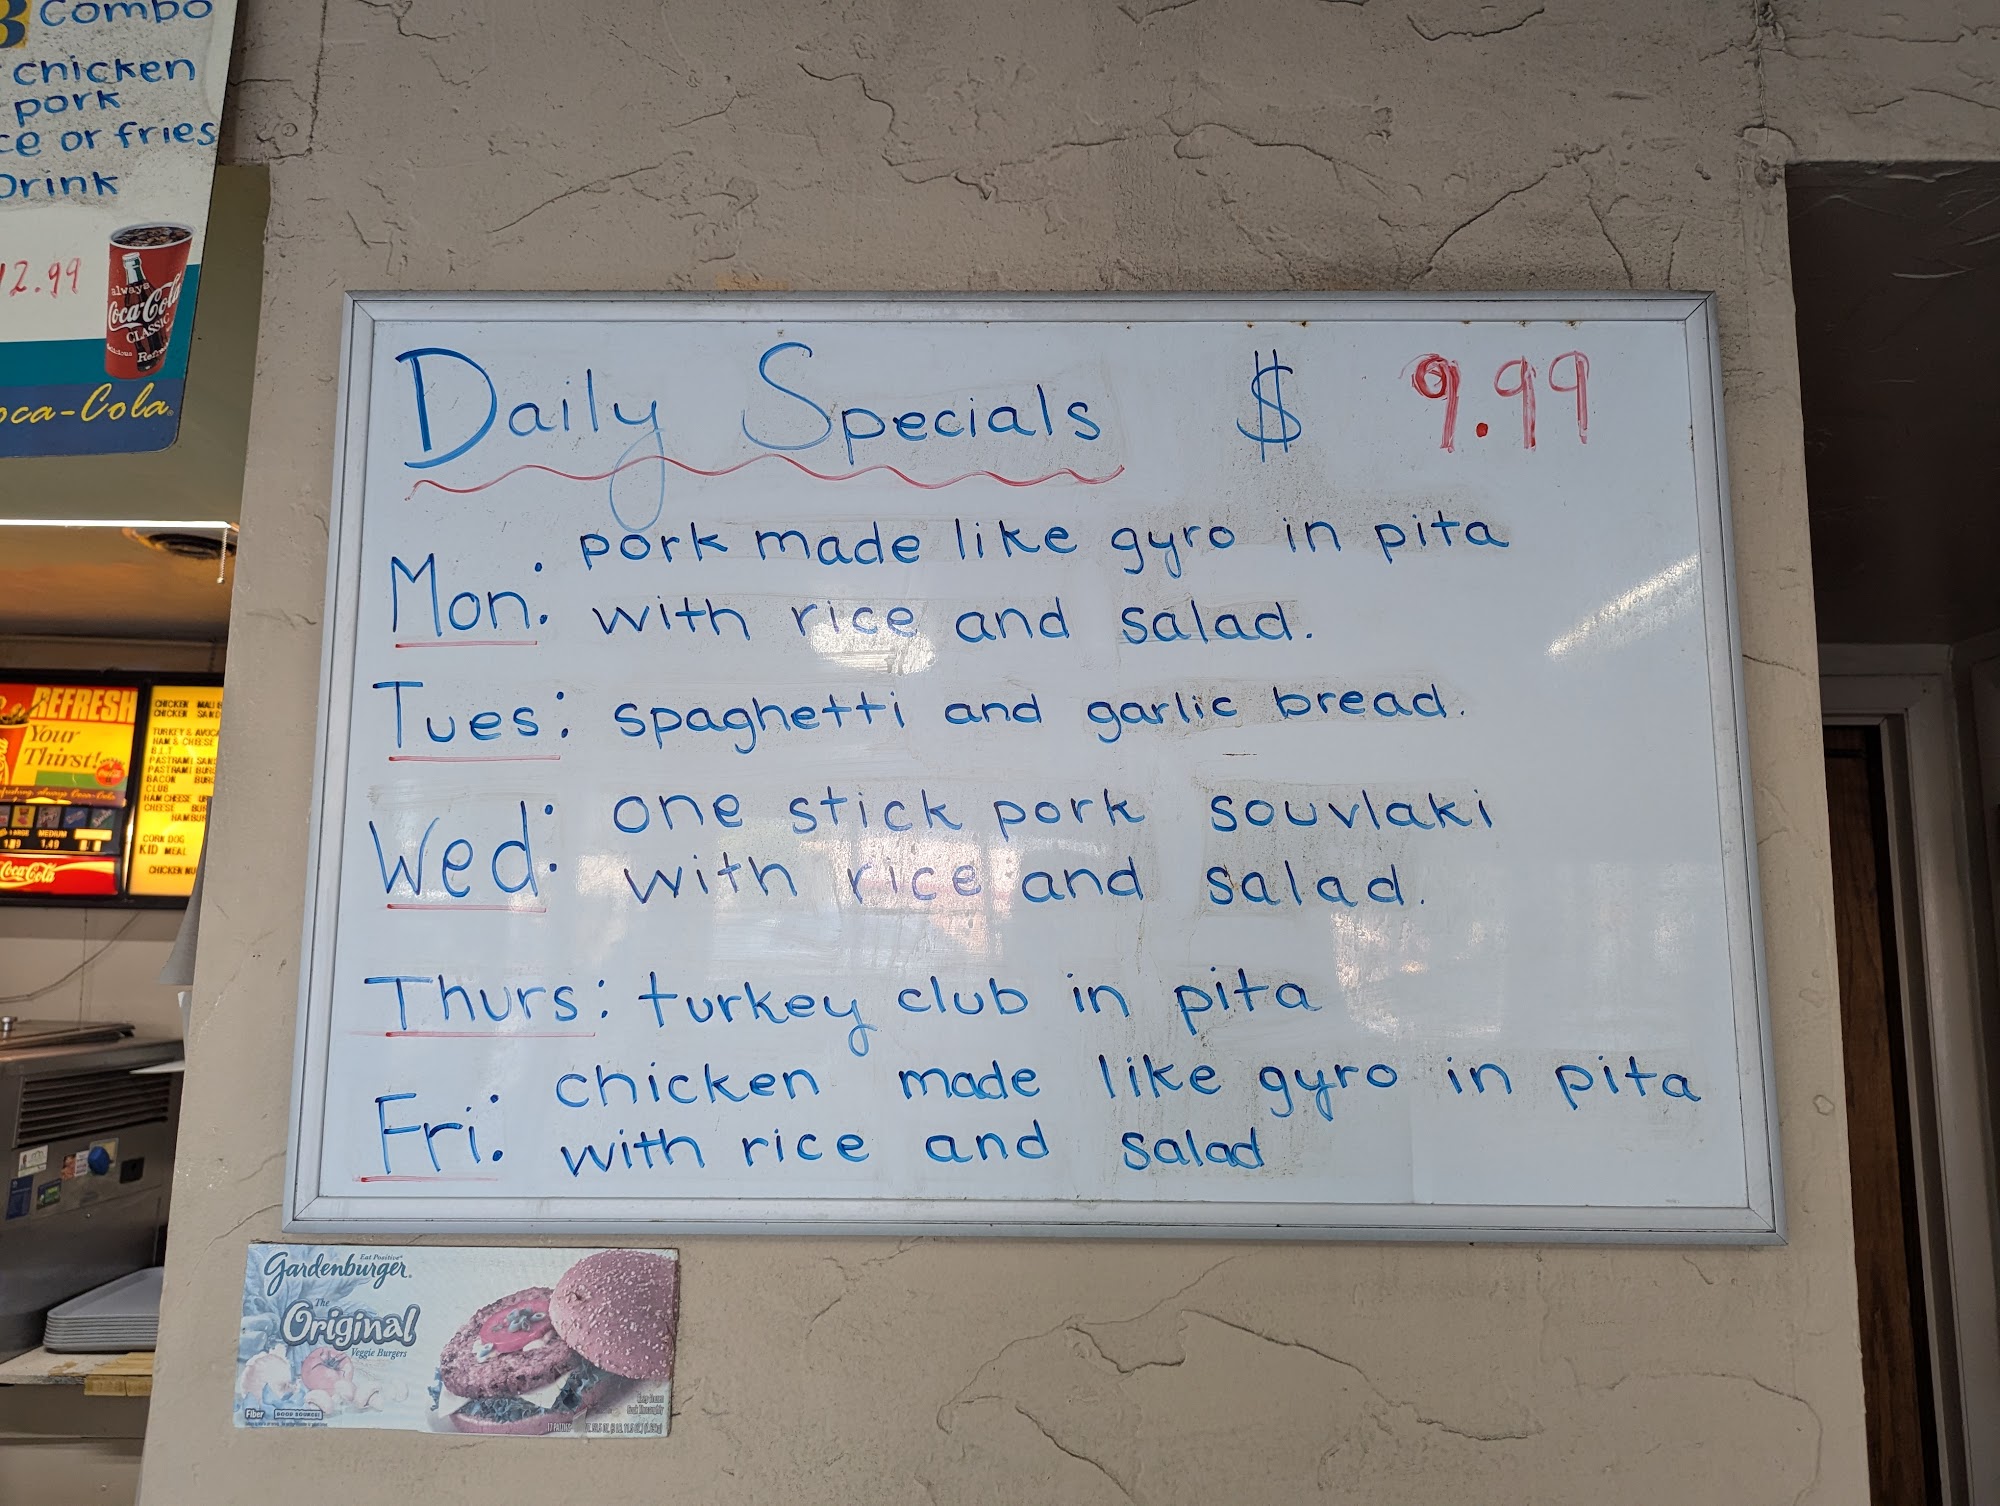 Combo
chicken
pork
or fries
Drink
12.99
always
Coca-Cola
CLASSIC
Coca-Cola
Daily Specials $ 9.99
Mon: pork made like gyro in pita
with rice and salad.
Tues: spaghetti and garlic bread.
Wed: one stick pork souvlaki
with rice and salad.
Thurs: turkey club in pita
Fri: chicken made like gyro in pita
with rice and salad
REFRESH
Your
Thirst!
always Coca-Cola
LARGE MEDIUM
1.49
Coca-Cola
CHICKEN
CHICKEN
TURKEY &
HAM & CHEESE
B.L.T
PASTRAMI
PASTRAMI
BACON
CLUB
HAM CHEESE
CHEESE
CORN DOG
KID MEAL
CHICKEN
Eat Positive
Gardenburger
The
Original
Veggie Burgers
Fiber
GOOD SOURCE!